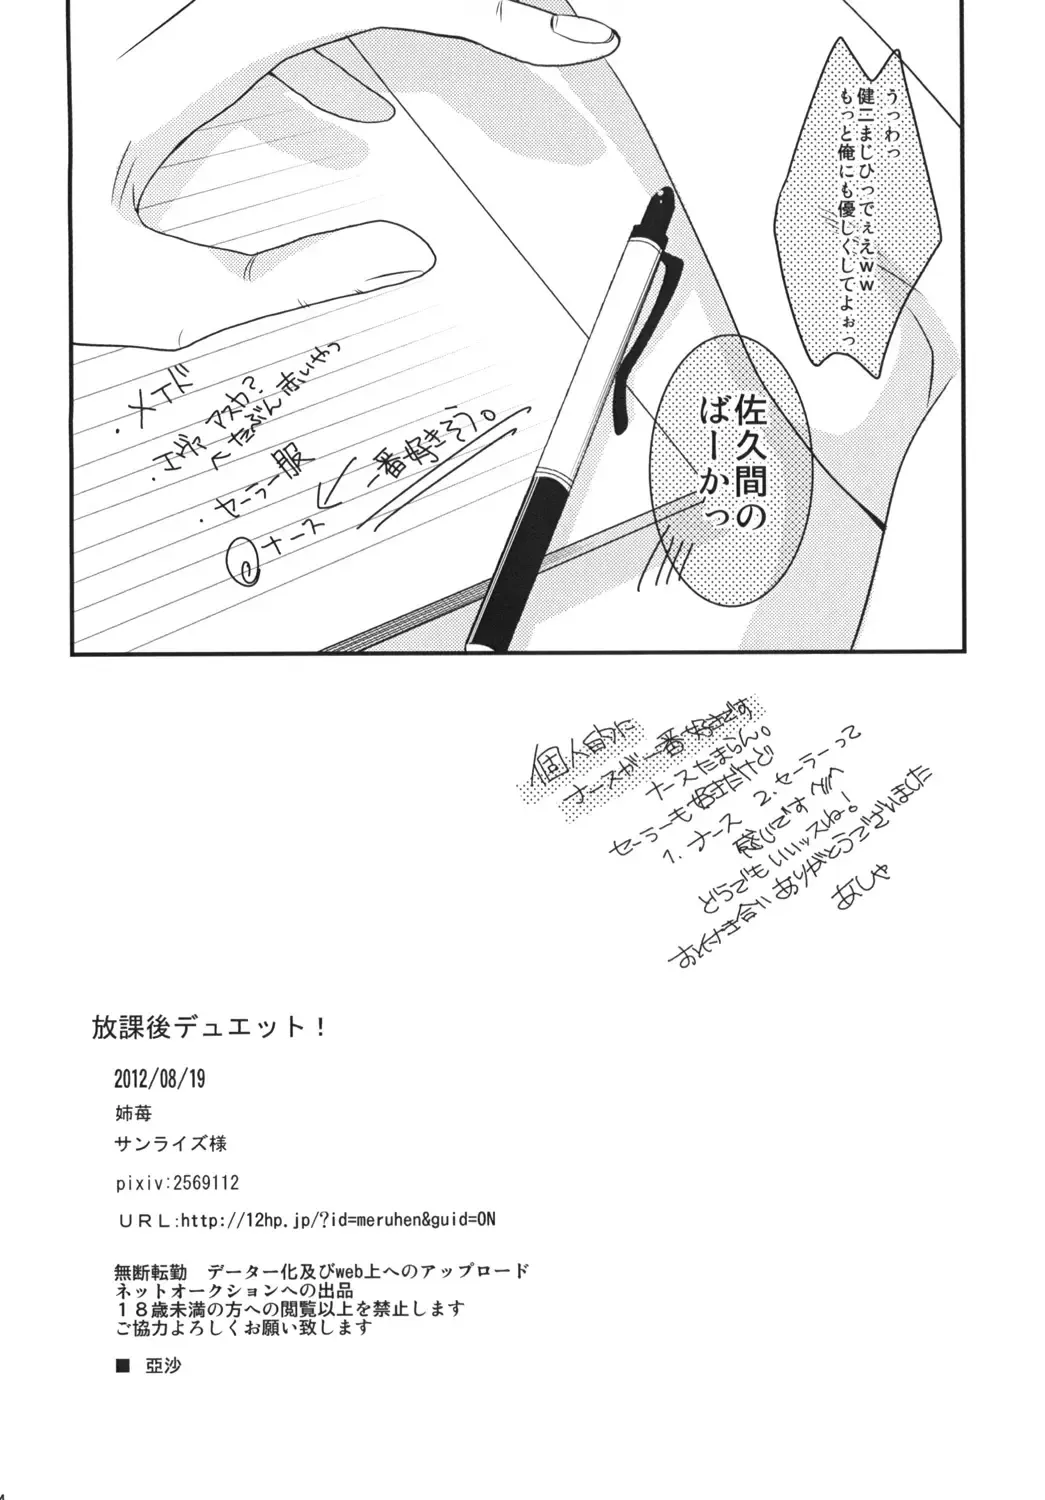 うっわっ
健二まじひっでぇえｗｗ
もっと俺にも優しくしてよぉっ
佐久間の
ばーかっ
・メイド
・エヴァ アスカ？
たぶん赤いやつ
・セーラー服
一番好きそう。
ナース
個人的に
ナースが一番好きです
ナースたまらん。
セーラーも好きだけど
1.ナース 2.セーラーって
感じです
どうでもいいッスね！
お付き合いありがとうございました
あしゃ
放課後デュエット！
2012/08/19
姉苺
サンライズ様
pixiv:2569112
ＵＲＬ:http://12hp.jp/?id=meruhen&guid=ON
無断転勤　データー化及びweb上へのアップロード
ネットオークションへの出品
１８歳未満の方への閲覧以上を禁止します
ご協力よろしくお願い致します
■　亞沙